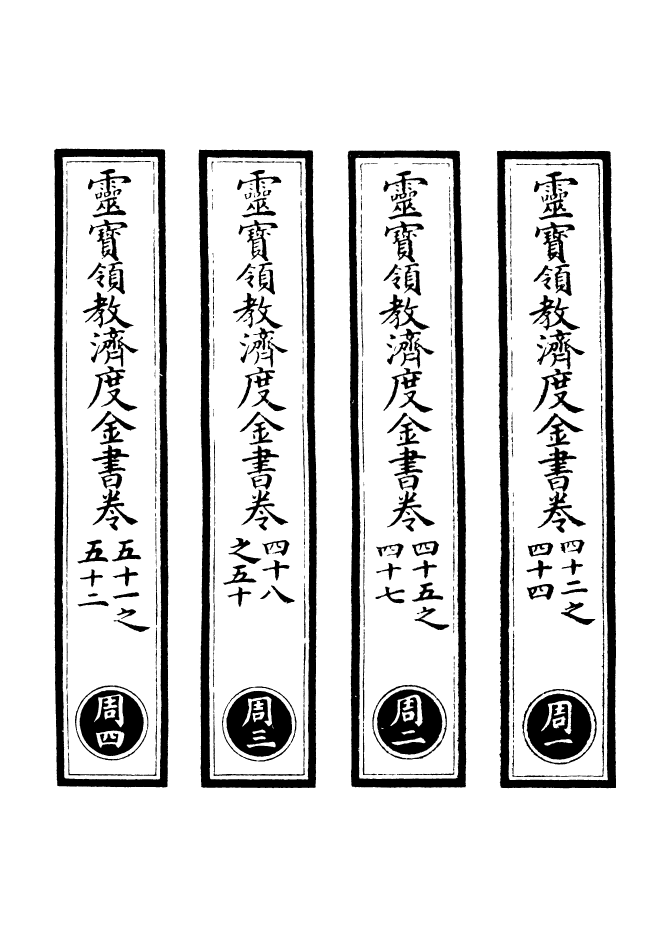 靈寶領教濟度金書卷
四十二之
四十四
周一
靈寶領教濟度金書卷
四十五之
四十七
周二
靈寶領教濟度金書卷
四十八
之五十
周三
靈寶領教濟度金書卷
五十一之
五十二
周四